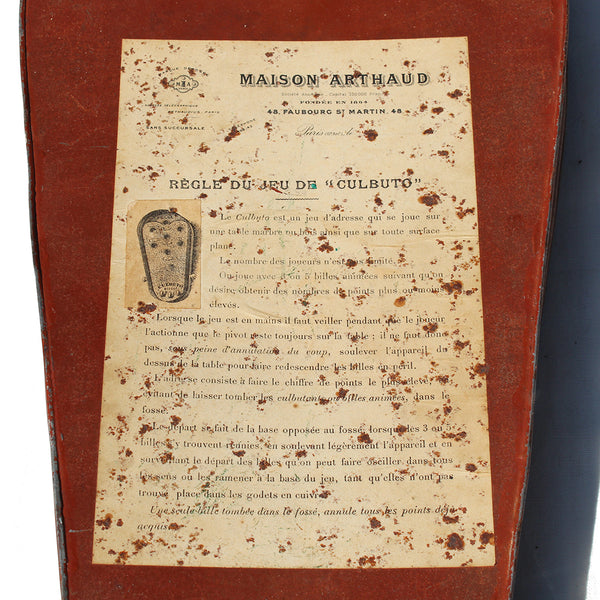 MAISON ARTHAUD
FONDÉE EN 1864
48, FAUBOURG ST MARTIN, 48
SANS SUCCURSALE
Paris
RÈGLE DU JEU DE "CULBUTO"
Le Culbuto est un jeu d'adresse qui se joue sur
une table marbre ou bois ainsi que sur toute surface
plane.
Le nombre des joueurs n'est pas limité.
On joue avec 3 ou 5 billes animées suivant qu'on
désire obtenir des nombres de points plus ou moins
élevés.
Lorsque le jeu est en mains il faut veiller pendant que le joueur
l'actionne que le pivot reste toujours sur la table ; il ne faut donc
pas, sous peine d'annulation du coup, soulever l'appareil du
dessus de la table pour faire redescendre les billes en péril.
L'adresse consiste à faire le chiffre de points le plus élevé, en
évitant de laisser tomber les culbutants ou billes animées, dans le
fossé.
Le départ se fait de la base opposée au fossé, lorsque les 3 ou 5
billes s'y trouvent réunies, en soulevant légèrement l'appareil et en
surveillant le départ des billes qu'on peut faire osciller dans tous
les sens ou les ramener à la base du jeu, tant qu'elles n'ont pas
trouvé place dans les godets en cuivre.
Une seule bille tombée dans le fossé, annule tous les points déjà
acquis.